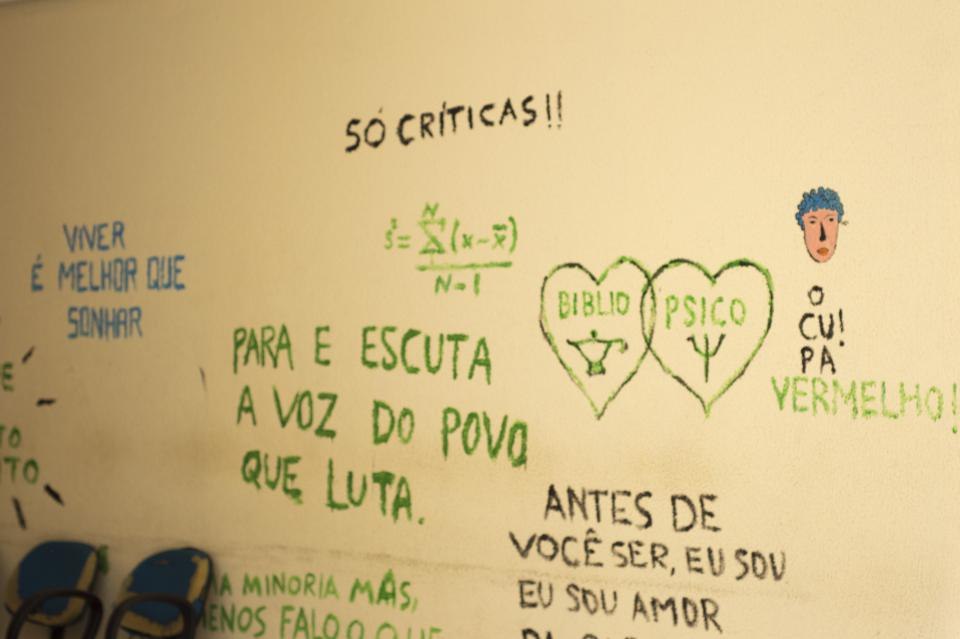 SÓ CRÍTICAS!!
VIVER
É MELHOR QUE
SONHAR
N
s²= Σ(x-x̄)
N-1
BIBLIO
PSICO
O
CU!
PA
VERMELHO!
PARA E ESCUTA
A VOZ DO POVO
QUE LUTA.
ANTES DE
VOCÊ SER, EU SOU
EU SOU AMOR
MINORIA MAS,
FALO O QUE